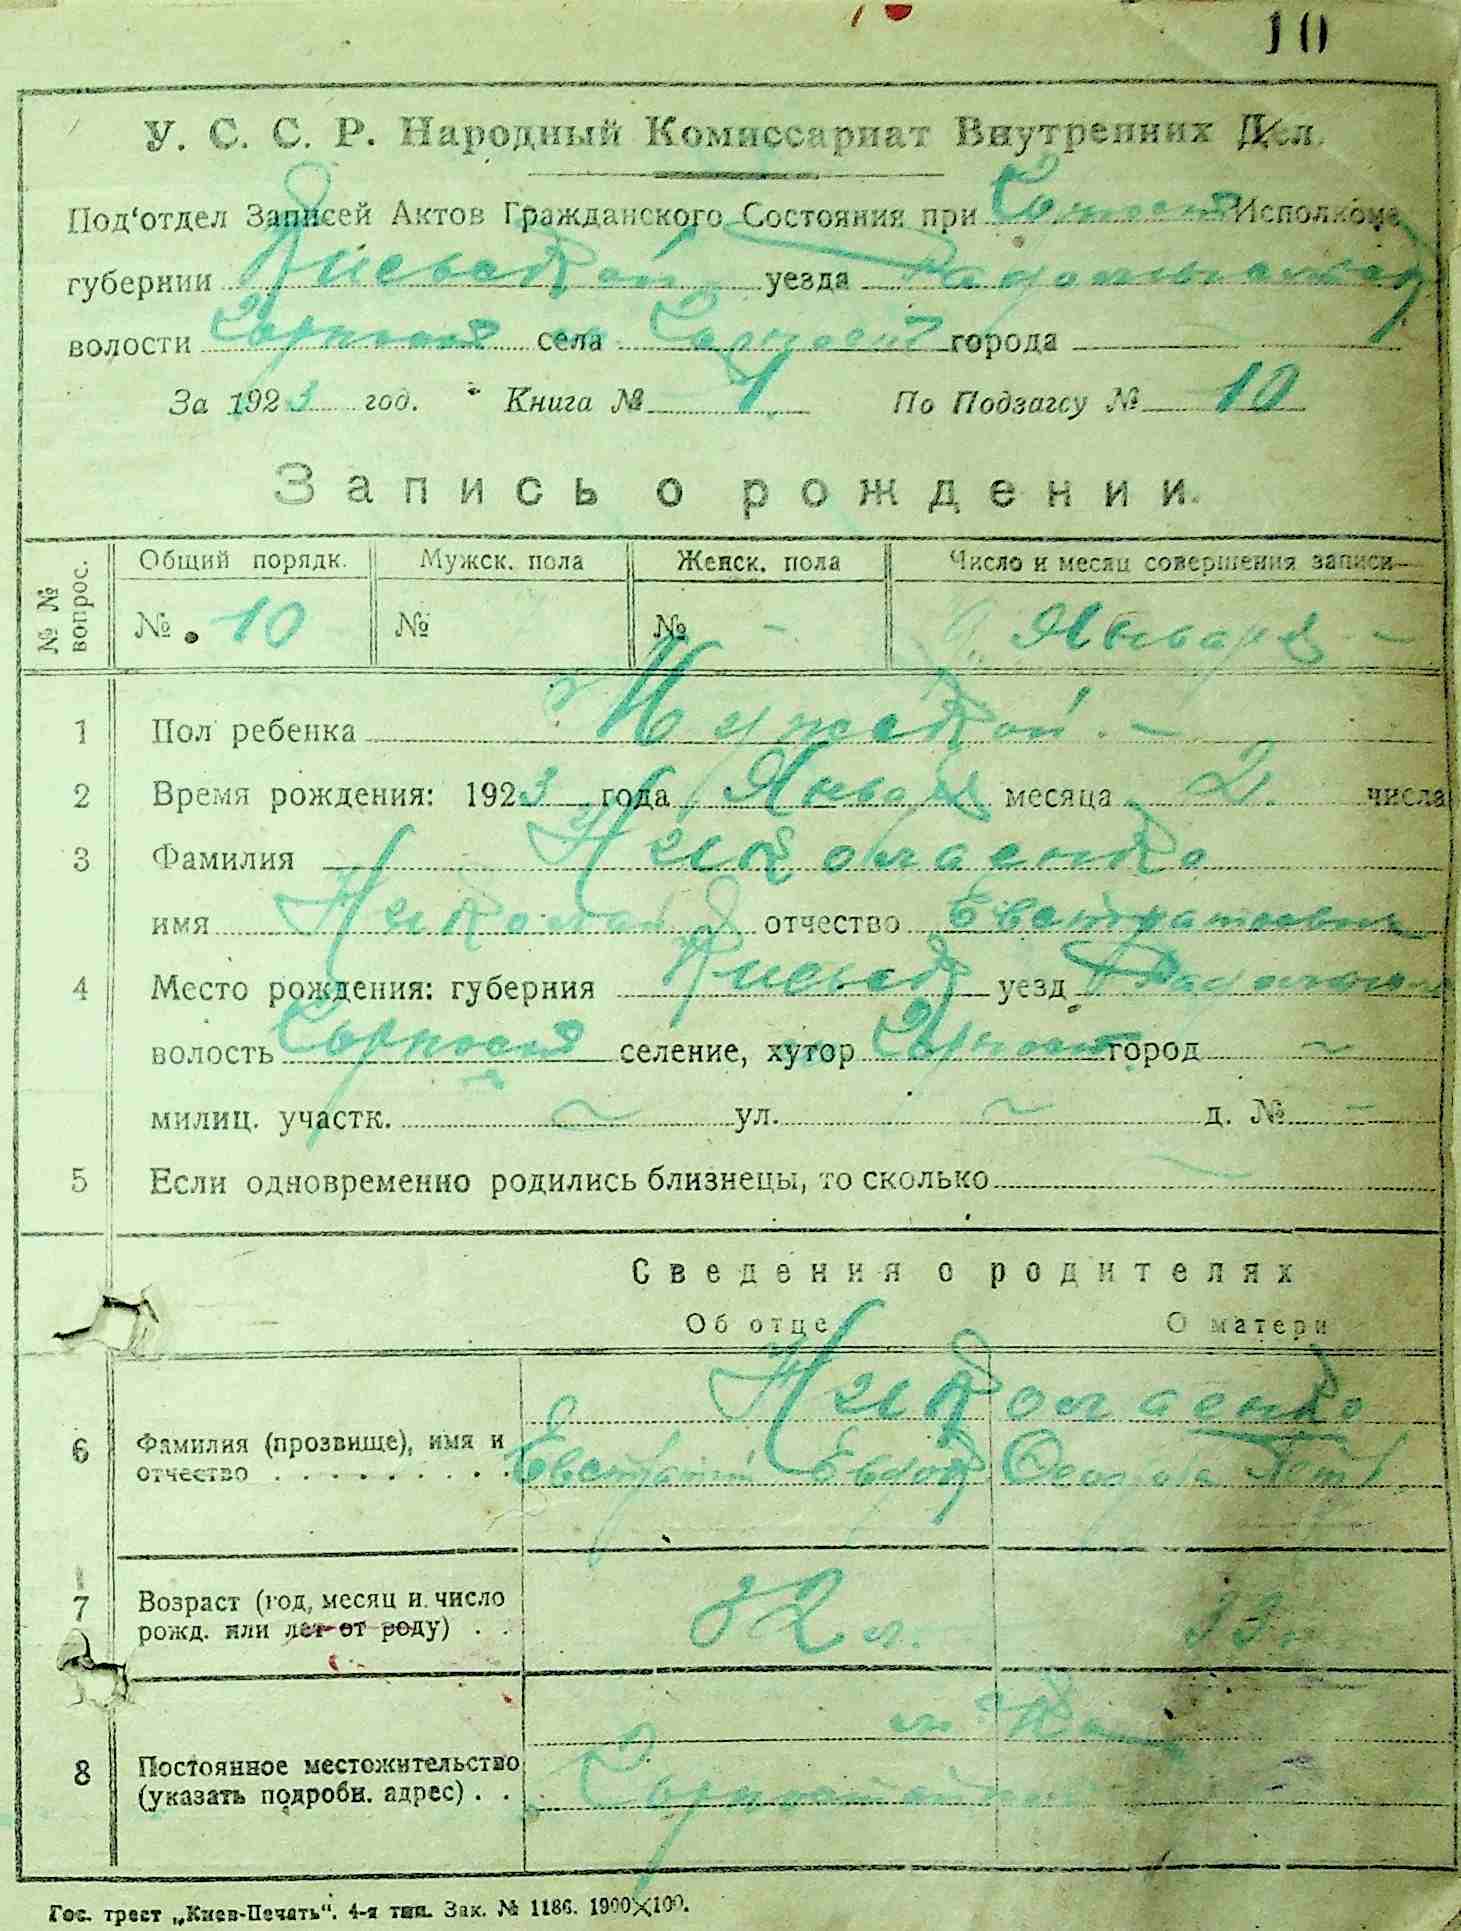 10
У. С. С. Р. Народный Комиссариат Внутренних Дел.
Под‘отдел Записей Актов Гражданского Состояния при Исполкоме
губернии Киевской уезда
волости села города
За 1923 год. Книга № 1. По Подзагсу № 10
Запись о рождении.
№ № вопрос. Общий порядк. Мужск. пола Женск. пола Число и месяц совершения записи
№ 10 № № - Января -
1 Пол ребенка Мужской. -
2 Время рождения: 1923 года Января месяца 2. числа
3 Фамилия Николаенко
имя Николай отчество Евстратиевич
4 Место рождения: губерния Киевск уезд
волость селение, хутор город ~
милиц. участк. ~ ул. ~ д. № -
5 Если одновременно родились близнецы, то сколько ~
Сведения о родителях
Об отце О матери
Николаенко
6 Фамилия (прозвище), имя и
отчество . . . . . . . . . Евстратий
7 Возраст (год, месяц и число
рожд. или лет от роду) . . 32 л. 33
8 Постоянное местожительство
(указать подробн. адрес) . .
Гос. трест „Киев-Печать“. 4-я тип. Зак. № 1186. 1900×100.